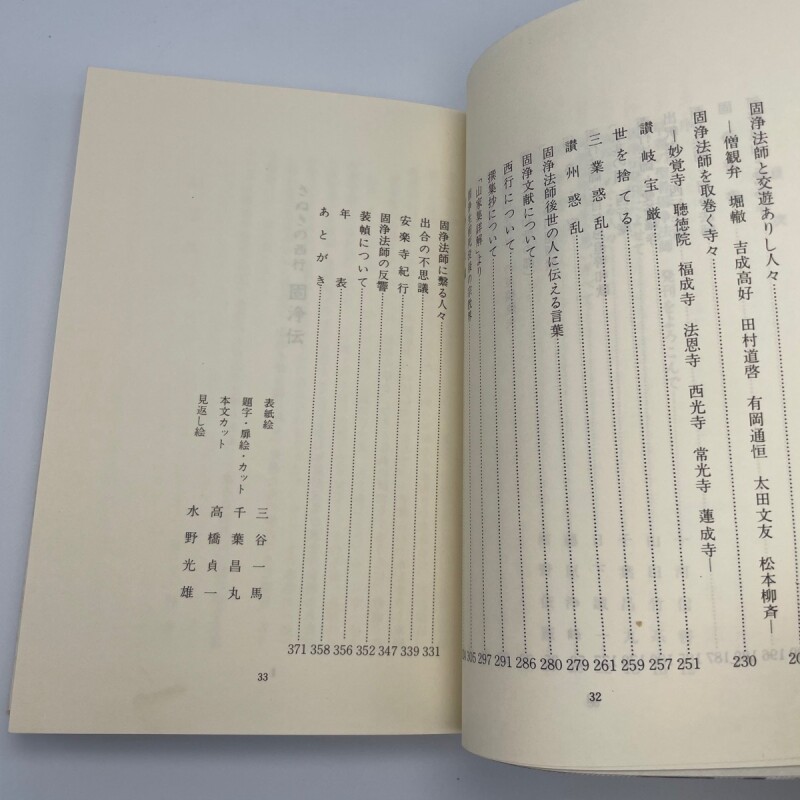 固浄法師と交遊ありし人々
―僧観弁 堀轍 吉成高好 田村道啓 有岡通恒 太田文友 松本柳斉― 230
固浄法師を取巻く寺々
―妙覚寺 聴徳院 福成寺 法恩寺 西光寺 常光寺 蓮成寺― 251
讃岐宝厳 257
世を捨てる 259
三業惑乱 261
讃州惑乱 279
固浄法師後世の人に伝える言葉 280
固浄文献について 286
西行について 291
撰集抄について 297
「山家集詳解」より 305
32
固浄法師に繋る人々 331
出合の不思議 339
安楽寺紀行 347
固浄法師の反響 352
装幀について 356
年表 358
あとがき 371
表紙絵 三谷一馬
題字・扉絵・カット 千葉昌丸
本文カット 高橋貞一
見返し絵 水野光雄
33